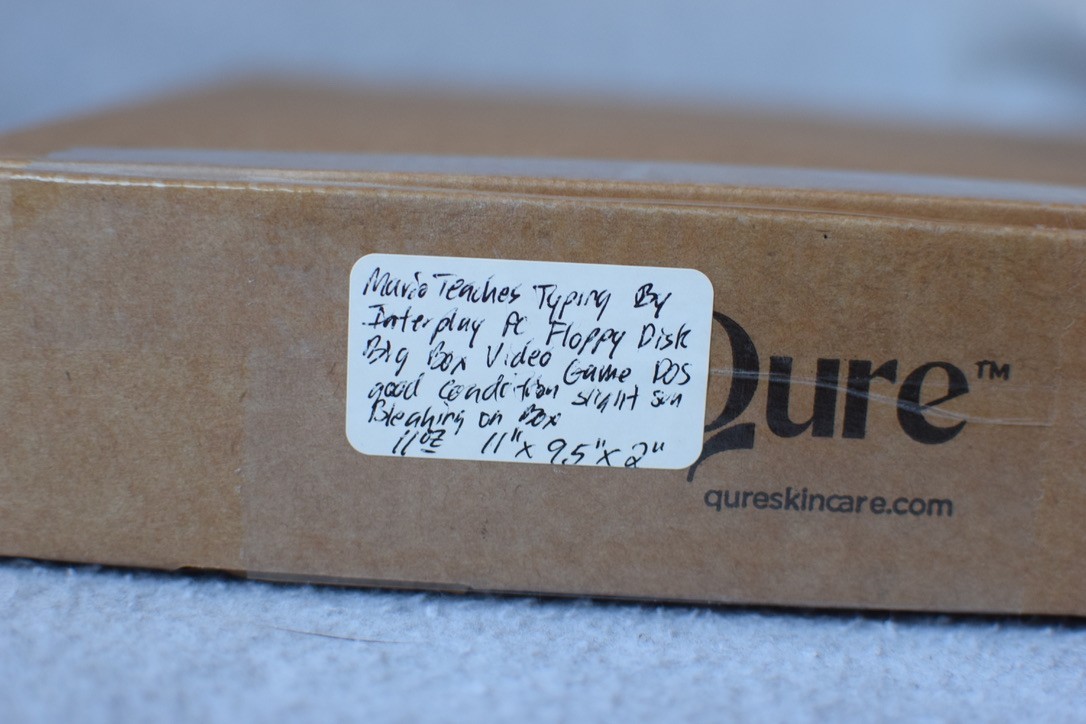 Mario Teaches Typing By
Interplay PC Floppy Disk
Big Box Video Game DOS
good condition slight sun
Bleaching on Box
11oz 11"x 9.5"x 2"
Qure™
qureskincare.com